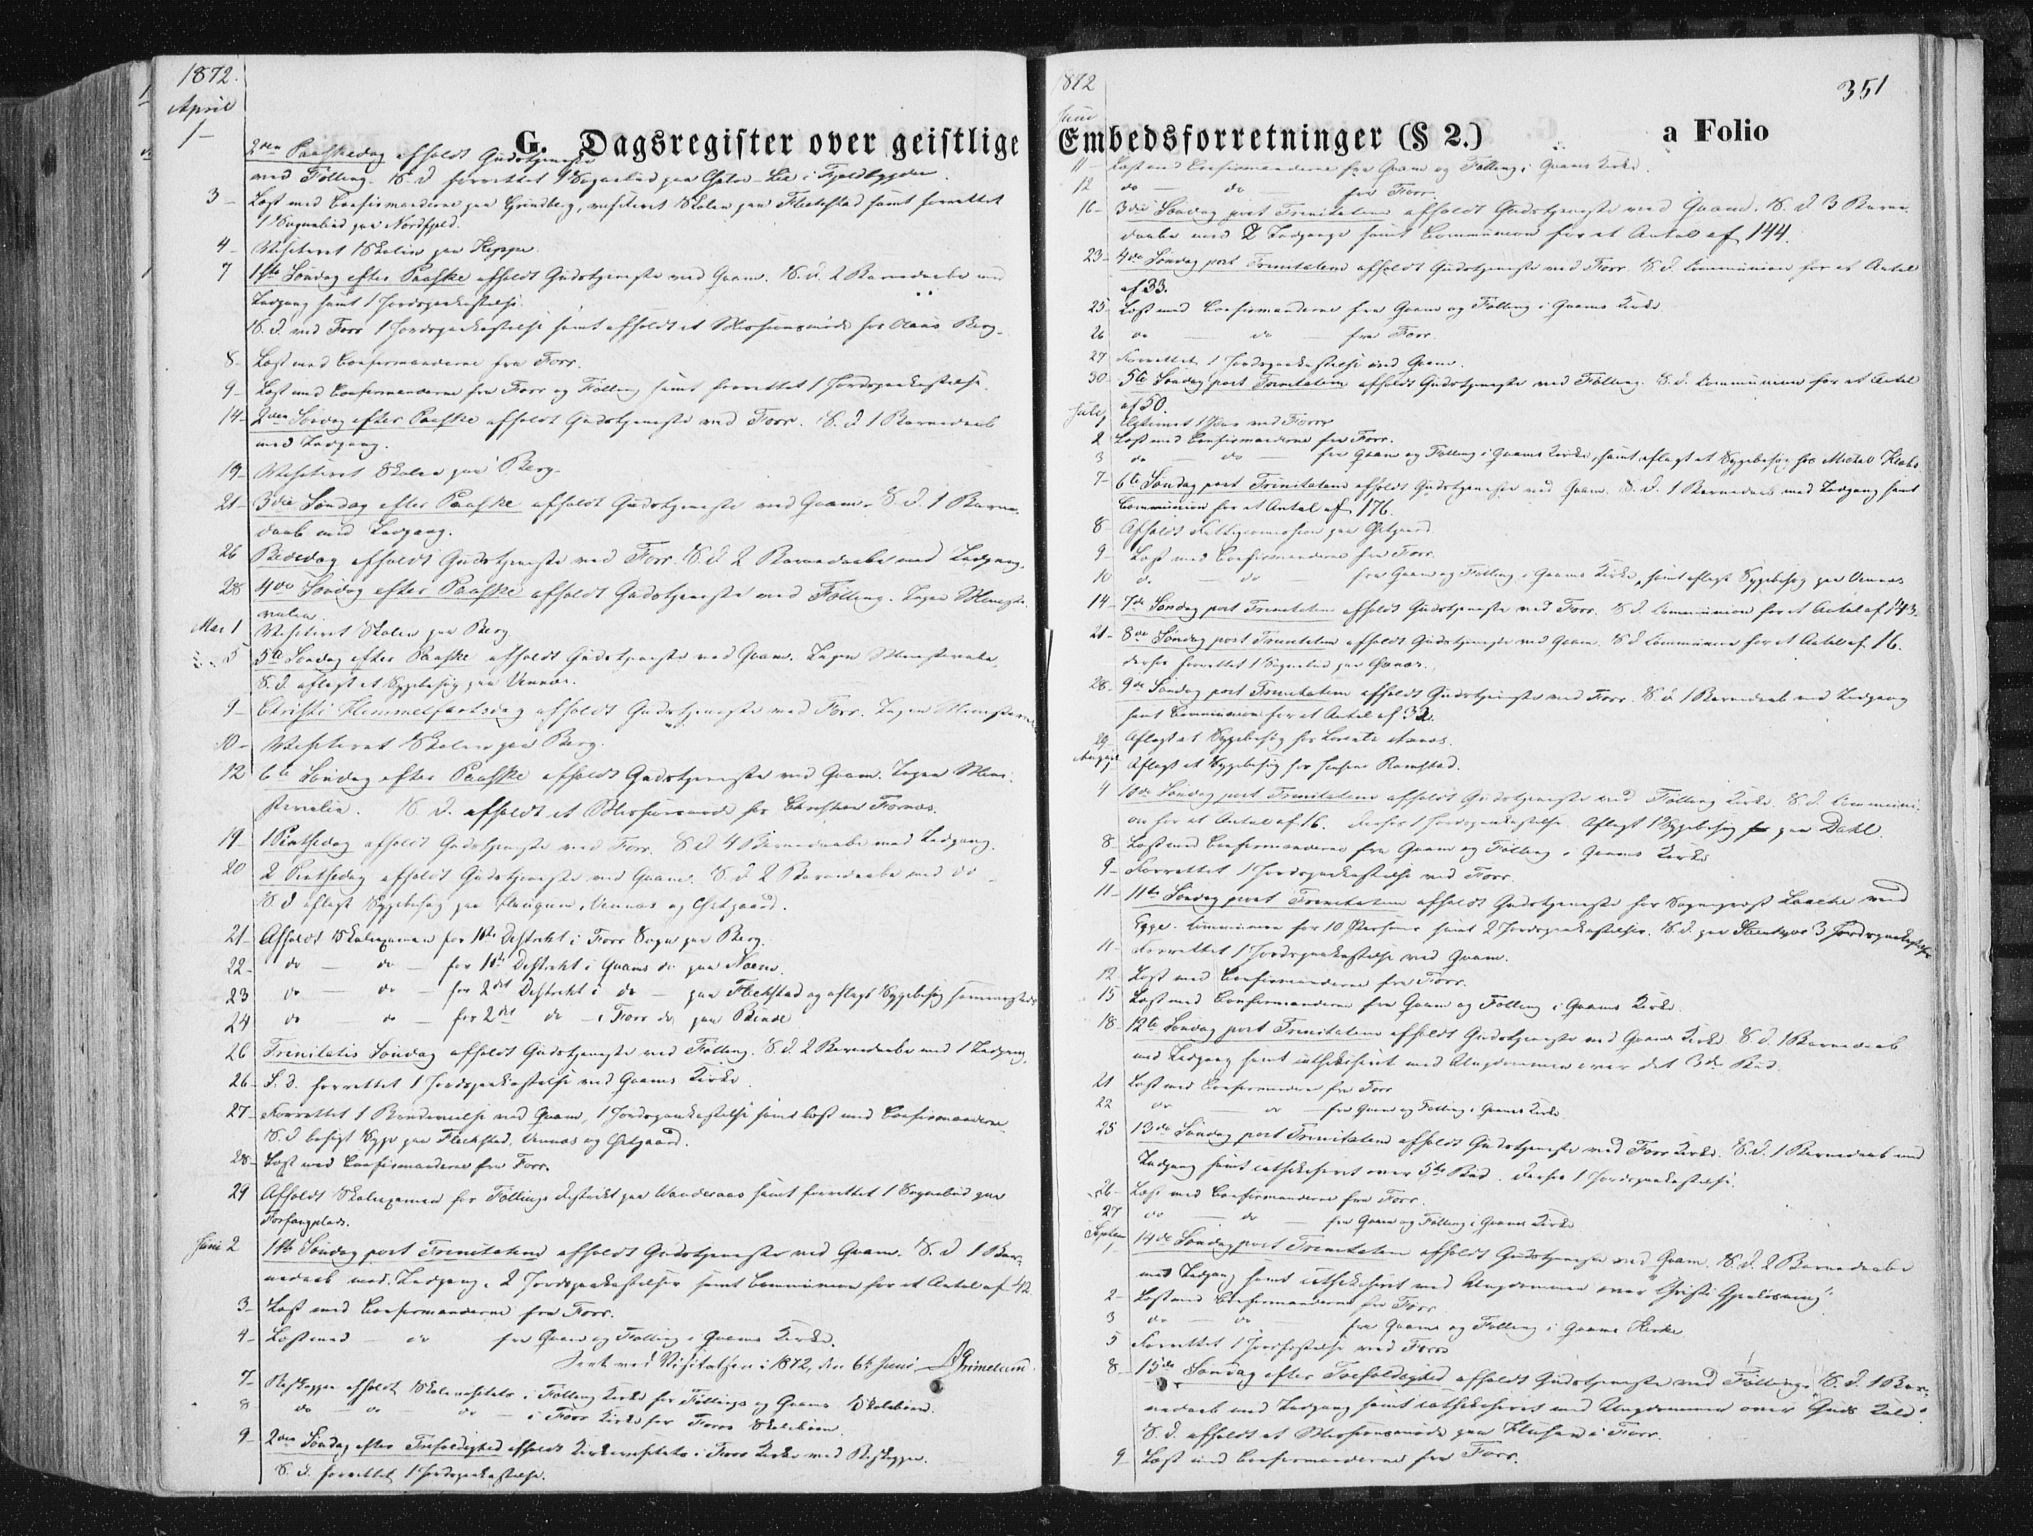 1872.
April
G. Dagsregister over geistlige
1- 2den Paaskedag afholdt Gudstjeneste
med Følling. S. D. forrettet 1 Sognebud paa
3- Læst med Confirmanderne paa Grindberg, visiteret Skolen paa Fleckstad samt forrettet
1 Sognebud paa Nordfjeld.
4- Visiteret Skolen paa Hegge.
7 1ste Søndag efter Paaske afholdt Gudstjeneste ved Qvam. S. d. 2 Barnedaab med
Indgang samt 1 Jordpaakastelse.
S. d. ved Forr 1 Jordpaakastelse samt afholdt et Missionsmøde hos Berg.
8- Læst med Confirmanderne fra Forr.
9- Læst med Confirmanderne fra Forr og Følling samt forrettet 1 Jordpaakastelse.
14- 2den Søndag efter Paaske afholdt Gudstjeneste ved Forr. S. d 1 Barnedaab
med Indgang.
19- Visiteret Skolen paa Berg.
21- 3die Søndag efter Paaske afholdt Gudstjeneste ved Qvam. S d. 1 Barne-
daab med Indgang.
26 Bededag afholdt Gudstjeneste ved Forr. S. d 2 Barnedaabe med Indgang.
28 4de Søndag efter Paaske afholdt Gudstjeneste ved Følling. Ingen Ministe-
rialia.
Mai 1 Visiteret Skolen paa Berg
5 5te Søndag efter Paaske afholdt Gudstjeneste ved Qvam. Ingen Ministerialia.
S. d. aflagt et Sygebesøg paa Vennes.
9- Christi Himmelfartsdag afholdt Gudstjeneste ved Forr. Ingen Ministeria
10- Visiteret Skolen paa Berg.
12 6te Søndag efter Paaske afholdt Gudstjeneste ved Qvam. Ingen Mini-
sterialia. S. d. afholdt et Missionsmøde hos Christian Fornes.
19- 1 Pintsedag afholdt Gudstjeneste ved Forr. S d 4 Barnedaabe med Indgang.
20 2 Pintsedag afholdt Gudstjeneste ved Qvam. S. d 2 Barnedaabe med do
S. d aflagt Sygebesøg paa Haugum, Vennes og Østgaard.
21- Afholdt Skoleexamen for 1ste Distrikt i Forr Sogn paa Berg.
22- do — do — for 1ste Distrikt i Qvams do paa Noem.
23 do — do — for 2det Distrikt i do — paa Fleckstad og aflagt Sygebesøg sammesteds
24 do — do — for 2det do — i Forr do paa Binde
26 Trinitatis Søndag afholdt Gudstjeneste ved Følling. S. d. 2 Barnedaabe med 1 Indgang.
26- S. d. forrettet 1 Jordpaakastelse ved Qvams Kirke.
27- Forrettet 1 Brudevielse ved Qvam, 1 Jordpaakastelse samt læst med Confirmanderne
S. d besøgt Syge paa Fleckstad, Vennes og Østgaard.
28- Læst med Confirmanderne fra Forr.
29 Afholdt Skoleexamen for Føllings Distrikt paa samt forrettet 1 Sognebud paa
Juni 2 1ste Søndag post Trinitatem afholdt Gudstjeneste ved Qvam. S. d 1 Bar-
nedaab med Indgang, 2 Jordpaakastelser samt Communion for et Antal af 42
3- Læst med Confirmanderne fra Forr.
4- Læst med — do fra Qvam og Følling i Qvams Kirke.
Seet ved Visitatsen i 1872, den 6te Juni Grimelund.
7- Biskoppen afholdt Skolevisitats i Følling Kirke for Føllings og Qvams Skolebørn.
8 do — do — do — i Forr Kirke for Forrs Skolebørn.
9- 2den Søndag efter Trefoldighed afholdt Kirkevisitats i Forr Kirke ved Biskoppen.
S. d. forrettet 1 Jordpaakastelse.
1872
351
Juni
Embedsforretninger (§ 2.)
a Folio
11- Læst med Confirmanderne fra Qvam og Følling i Qvams Kirke.
12 do — do — fra Forr.
16- 3die Søndag post Trinitatem afholdt Gudstjeneste ved Qvam. S. d 3 Barne-
daabe med 2 Indgange samt Communion for et Antal af 144.
23- 4de Søndag post Trinitatem afholdt Gudstjeneste ved Forr. S. d. Communion for et Antal
af 33.
25- Læst med Confirmanderne fra Qvam og Følling i Qvams Kirke
26 do — do — fra Forr.
27 Forrettet 1 Jordpaakastelse ved Qvam.
30- 5te Søndag post Trinitatem afholdt Gudstjeneste ved Følling. S. d. Communion for et Antal
af 50.
July 1 Par ved Forr
2 Læst med Confirmanderne fra Forr.
3 do — do — fra Qvam og Følling i Qvams Kirke, samt aflagt et Sygebesøg hos Michal
7- 6te Søndag post Trinitatem afholdt Gudstjeneste ved Qvam. S. d. 1 Barnedaab med Indgang samt
Communion for et Antal af 176.
8 Afholdt Fattigcommission paa Østgaard.
9- Læst med Confirmanderne fra Forr.
10 do — do — fra Qvam og Følling i Qvams Kirke, samt aflagt Sygebesøg paa Vennes
14- 7de Søndag post Trinitatem afholdt Gudstjeneste ved Forr. S d. Communion for et Antal af 143.
21- 8de Søndag post Trinitatem afholdt Gudstjeneste ved Qvam. S d Communion for et Antal af 16.
derfra forrettet 1 Sognebud paa
28- 9de Søndag post Trinitatem afholdt Gudstjeneste ved Forr. S. d 1 Barnedaab med Indgang
samt Communion for et Antal af 32.
29 Aflagt et Sygebesøg hos
August 1 Aflagt et Sygebesøg hos Ramstad.
4 10de Søndag post Trinitatem afholdt Gudstjeneste ved Følling Kirke. S. d. Communi-
on for et Antal af 16. Derhos 1 Jordpaakastelse. Aflagt 1 Sygebesøg paa Dahl.
8- Læst med Confirmanderne fra Qvam og Følling i Qvams Kirke
9- Forrettet 1 Jordpaakastelse ved Forr.
11- 11te Søndag post Trinitatem afholdt Gudstjeneste for Sogneprest Laache ved
Egge. Communion for 10 Personer samt 2 Jordpaakastelser. S. d. paa 3 Jordpaakastelser
11- Forrettet 1 Jordpaakastelse ved Qvam.
12- Læst med Confirmanderne fra Forr.
15 Læst med Confirmanderne fra Qvam og Følling i Qvams Kirke.
18- 12te Søndag post Trinitatem afholdt Gudstjeneste ved Qvams Kirke. S. d. 1 Barnedaab
med Indgang samt cathekiseret med Ungdommen over det 3die Bud.
21 Læst med Confirmanderne fra Forr
22 do — do — fra Qvam og Følling i Qvams Kirke.
25 13de Søndag post Trinitatem afholdt Gudstjeneste ved Forr Kirke. S. d. 1 Barnedaab med
Indgang samt cathekiseret over 5te Bud. Derhos 1 Jordpaakastelse.
26- Læst med Confirmanderne fra Forr.
27 do — do — fra Qvam og Følling i Qvams Kirke
Septem 1 14de Søndag post Trinitatem afholdt Gudstjeneste ved Qvam. S. d. 2 Barnedaabe
med Indgang samt cathekiseret med Ungdommen over "Christi Gjenløsning".
2- Læst med Confirmanderne fra Forr.
3 do — do — fra Qvams og Følling i Qvams Kirke
5 Forrettet 1 ved Forr
8- 15de Søndag efter Trefoldighed afholdt Gudstjeneste ved Følling. S. d. 1 Bar-
nedaab med Indgang samt cathekiseret med Ungdommen over "Guds Kald".
S. d. afholdt et Missionsmøde paa i Forr.
9 Læst med Confirmanderne fra Forr.